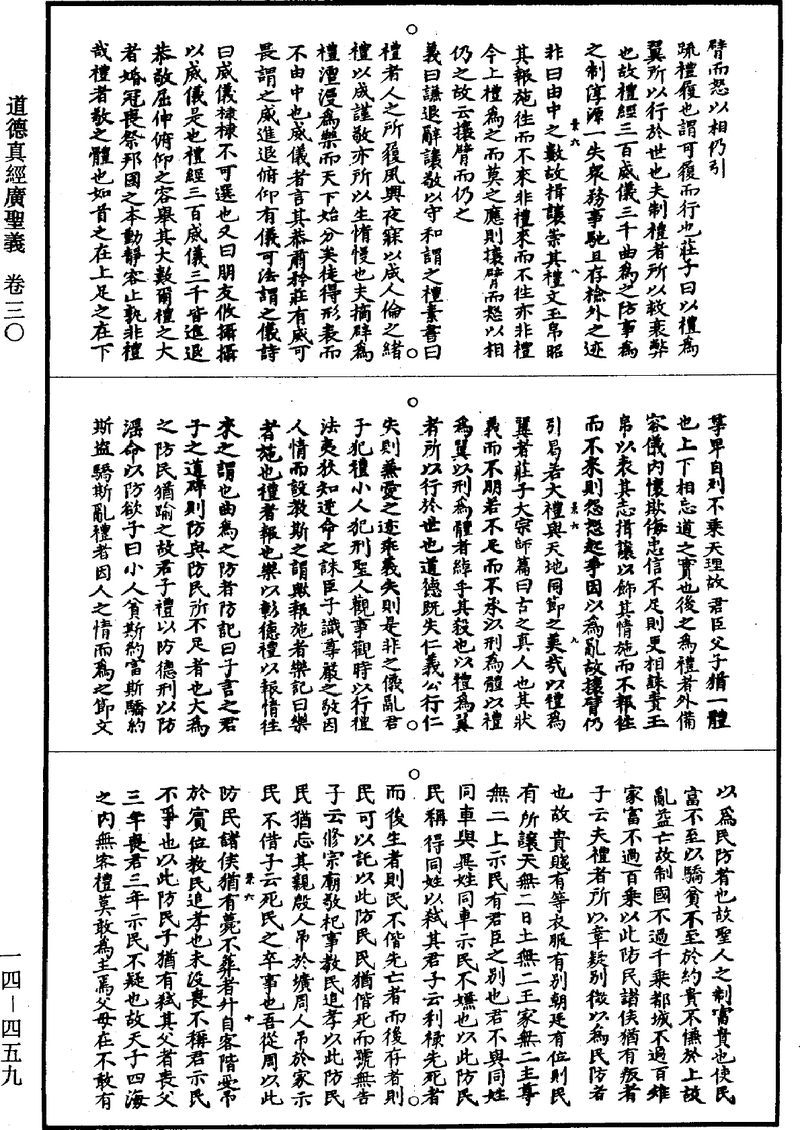 道德真經廣聖義　卷三〇
臂而怒以相仍引
疏禮履也謂可履而行也莊子曰以禮為
翼所以行於世也夫制禮者所以救衰弊
也故禮經三百威儀三千曲為之防事為
之制淳源一失眾務事馳且存檢外之迹
非曰由中之數故揖讓崇其禮文玉帛昭
其報施往而不來非禮來而不往亦非禮
今上禮為之而莫之應則攘臂而怒以相
仍之故云攘臂而仍之
義曰謙退辭讓敬以守和謂之禮素書曰
禮者人之所履夙興夜寐以成人倫之緒
禮以成謹敬亦所以生惰慢也夫摘僻為
禮澶漫為樂而天下始分矣徒得形表而
不由中也威儀者言其恭肅矜莊有威可
畏謂之威進退俯仰有儀可法謂之儀詩
曰威儀棣棣不可選也又曰朋友攸攝攝
以威儀是也禮經三百威儀三千皆進退
恭敬屈伸俯仰之容舉其大數爾禮之大
者婚冠喪祭邦國之本動靜容止孰非禮
哉禮者敬之體也如首之在上足之在下
尊卑自列不乘天理故君臣父子猶一體
也上下相忘道之實也後之為禮者外備
容儀內懷欺侮忠信不足則更相誅責玉
帛以表其志揖讓以飾其情施而不報往
而不來則怨怒起爭因以為亂故攘臂仍
引曷若大禮與天地同節之美哉以禮為
翼者莊子大宗師篇曰古之真人也其狀
義而不朋若不足而不承以刑為體以禮
為翼以刑為體者綽乎其殺也以禮為翼
者所以行於世也道德既失仁義公行仁
失則兼愛之迹乖義失則是非之儀亂君
子犯禮小人犯刑聖人觀事觀時以行禮
法夷狄知逆命之誅臣子識尊嚴之敬因
人情而設教斯之謂歟報施者樂記曰樂
者施也禮者報也樂以彰德禮以報情往
來之謂也曲為之防者防記曰子言之君
子之道辟則防與防民所不足者也大為
之防民猶踰之故君子禮以防德刑以防
淫命以防欲子曰小人貧斯約富斯驕約
斯盜驕斯亂禮者因人之情而為之節文
以為民防者也故聖人之制富貴也使民
富不至以驕貧不至於約貴不慊於上故
亂益亡故制國不過千乘都城不過百雉
家富不過百乘以此防民諸侯猶有叛者
子云夫禮者所以章疑別微以為民防者
也故貴賤有等衣服有別朝廷有位則民
有所讓天無二日土無二王家無二主尊
無二上示民有君臣之別也君不與同姓
同車與異姓同車示民不嫌也以此防民
民稱得同姓以弒其君子云利祿先死者
而後生者則民不偝先亡者而後存者則
民可以託以此防民民猶偝死而號無告
子云修宗廟敬祀事教民追孝以此防民
民猶忘其親殷人弔於壙周人弔於家示
民不偝子云死民之卒事也吾從周以此
防民諸侯猶有薨不葬者升自客階受弔
於賓位教民追孝也未沒喪不稱君示民
不爭也以此防民子猶有弒其父者喪父
三年喪君三年示民不疑也故天子四海
之內無客禮莫敢為主焉父母在不敢有
一四—四五九